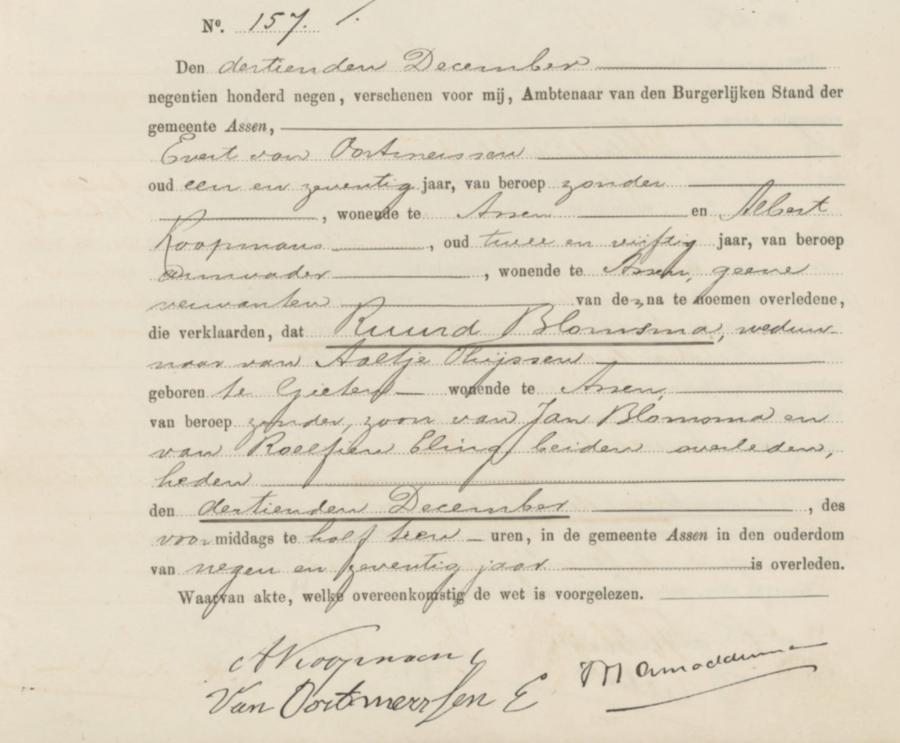 No. 157.
Den dertienden December
negentien honderd negen, verschenen voor mij, Ambtenaar van den Burgerlijken Stand der
gemeente Assen,
Evert van Oortmerssen
oud een en zeventig jaar, van beroep zonder
, wonende te Assen en Albert
Koopmans, oud twee en vijftig jaar, van beroep
armvader, wonende te Assen, geene
verwanten van de na te noemen overledene,
die verklaarden, dat Ruurd Blomsma, weduw-
naar van Aaltje Thijssen
geboren te Gieten wonende te Assen,
van beroep zonder, zoon van Jan Blomsma en
van Roelfien Eling beiden overleden,
heden
den dertienden December, des
voormiddags te half tien uren, in de gemeente Assen in den ouderdom
van negen en zeventig jaar is overleden.
Waarvan akte, welke overeenkomstig de wet is voorgelezen.
A Koopmans
Van Oortmerssen E